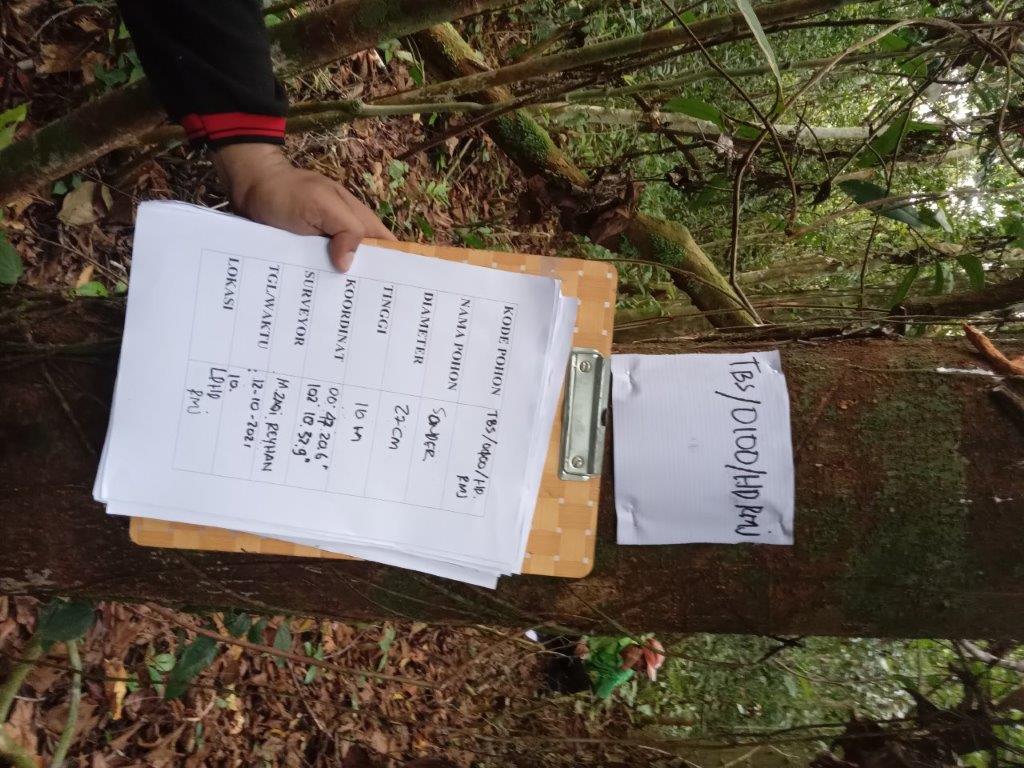 TBS/0100/HD RMJ
KODE POHON TBS/0100/HD.
RMJ
NAMA POHON SONDER
DIAMETER 27 CM
TINGGI 10 m
KOORDINAT 00° 47. 20.6"
102° 10. 37.9"
SURVEYOR M. ZAQI. REYHAN
TGL/WAKTU : 12-10-2021
10.
LOKASI LPHD
RMJ